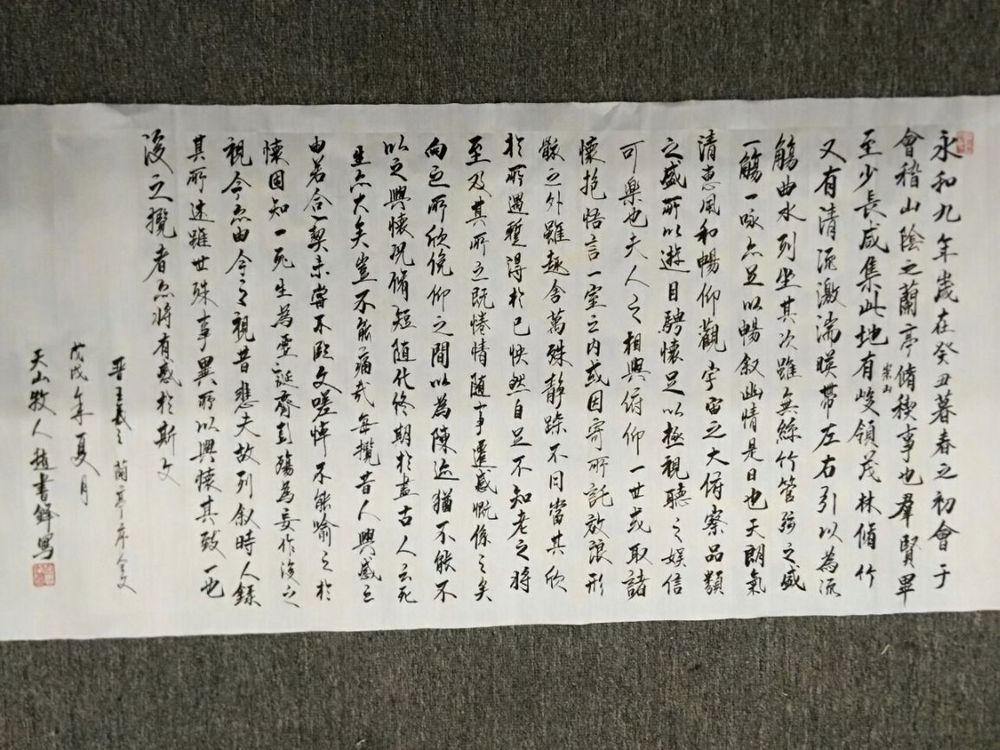 永和九年歲在癸丑暮春之初會于
會稽山陰之蘭亭脩稧事也羣賢畢
至少長咸集此地有峻領茂林脩竹
崇山
又有清流激湍暎帶左右引以為流
觴曲水列坐其次雖無絲竹管弦之盛
一觴一詠亦足以暢叙幽情是日也天朗氣
清惠風和暢仰觀宇宙之大俯察品類
之盛所以遊目騁懷足以極視聽之娛信
可樂也夫人之相與俯仰一世或取諸
懷抱悟言一室之内或因寄所託放浪形
骸之外雖趣舍萬殊静躁不同當其欣
於所遇蹔得於己快然自足不知老之將
至及其所之既惓情随事遷感慨係之矣
向之所欣俛仰之間以為陳迹猶不能不
以之興懷況脩短随化終期於盡古人云死
生亦大矣豈不痛哉每攬昔人興感之
由若合一契未嘗不臨文嗟悼不能喻之於
懷固知一死生為虛誕齊彭殤為妄作後之
視今亦由今之視昔悲夫故列叙時人録
其所述雖世殊事異所以興懷其致一也
後之攬者亦將有感於斯文
晉王羲之蘭亭序全文
戊戌年夏月
天山牧人趙書鋒寫